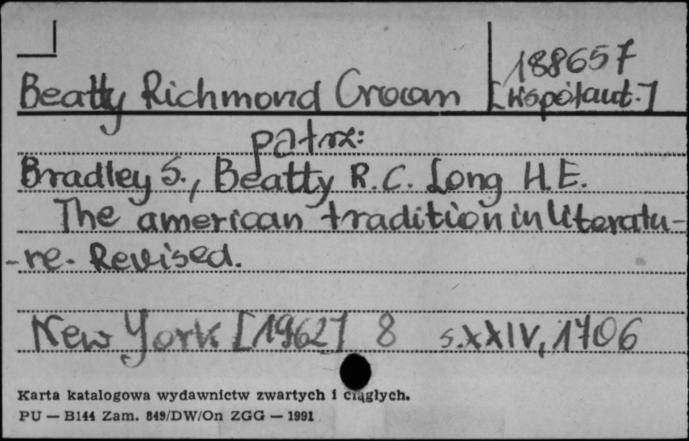 188657
Beatty Richmond Croom [Współaut.]
patrz:
Bradley S., Beatty R.C. Long H.E.
The american tradition in literatu-
-re. Revised.
New York [1962] 8 s. XXIV, 1706
Karta katalogowa wydawnictw zwartych i ciągłych.
PU — B144 Zam. 849/DW/On ZGG — 1991